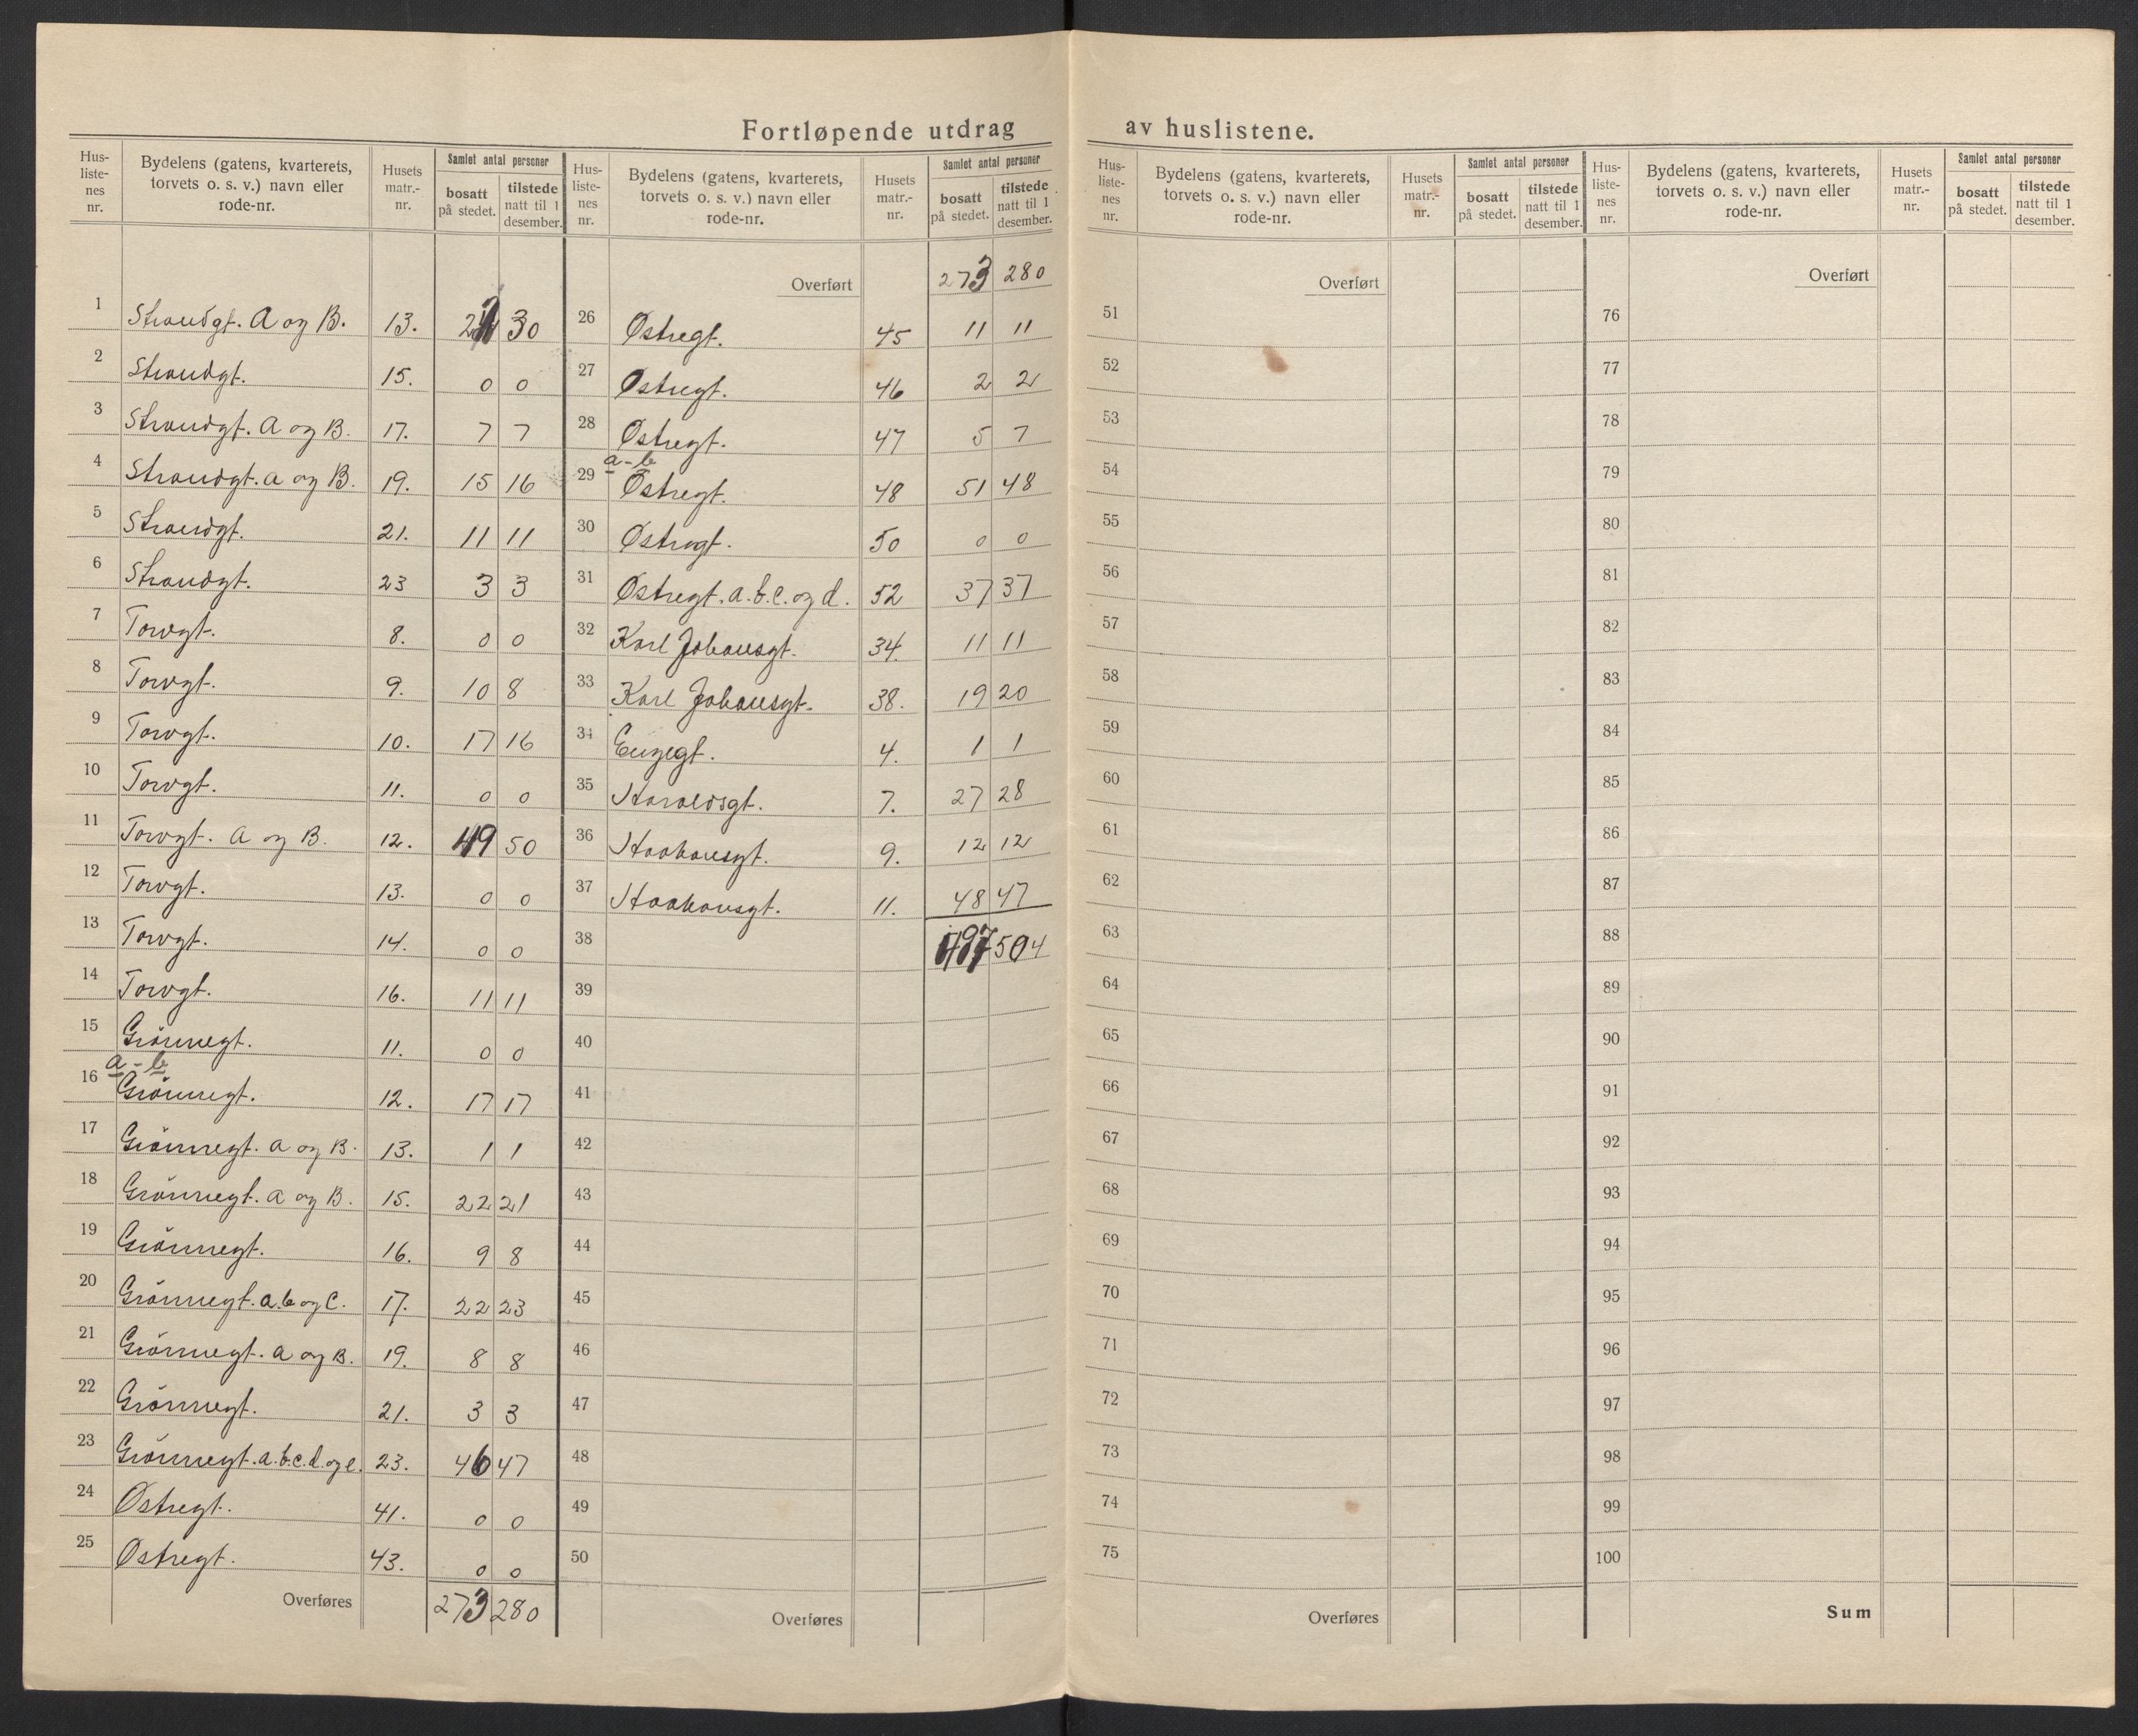 Fortløpende utdrag av huslistene.
Hus-
liste-
nes
nr.
Bydelens (gatens, kvarterets,
torvets o. s. v.) navn eller
rode-nr.
Husets
matr.-
nr.
Samlet antal personer
bosatt
på stedet.
tilstede
natt til 1
desember.
1 Strandgt. A og B. 13. 30
2 Strandgt. 15. 0 0
3 Strandgt. A og B. 17. 7 7
4 Strandgt. A og B. 19. 15 16
5 Strandgt. 21. 11 11
6 Strandgt. 23 3 3
7 Torvgt. 8. 0 0
8 Torvgt. 9. 10 8
9 Torvgt. 10. 17 16
10 Torvgt. 11. 0 0
11 Torvgt. A og B. 12. 49 50
12 Torvgt. 13. 0 0
13 Torvgt. 14. 0 0
14 Torvgt. 16. 11 11
15 Grönnegt. 11. 0 0
a - b
16 Grönnegt. 12. 17 17
17 Grönnegt. A og B. 13. 1 1
18 Grönnegt. A og B. 15. 22 21
19 Grönnegt. 16. 9 8
20 Grönnegt. a.b og C. 17. 22 23
21 Grönnegt. A og B. 19. 8 8
22 Grönnegt. 21. 3 3
23 Grönnegt. a.b.c.d. og e. 23. 46 47
24 Østregt. 41. 0 0
25 Østregt. 43. 0 0
Overføres 273 280
Hus-
liste-
nes
nr.
Bydelens (gatens, kvarterets,
torvets o. s. v.) navn eller
rode-nr.
Husets
matr.-
nr.
Samlet antal personer
bosatt
på stedet.
tilstede
natt til 1
desember.
Overført 273 280
26 Østregt. 45 11 11
27 Østregt. 46 2 2
28 Østregt. 47 5 7
a - b
29 Østregt. 48 51 48
30 Østregt. 50 0 0
31 Østregt. a.b.c. og d. 52 37 37
32 Karl Johansgt. 34. 11 11
33 Karl Johansgt. 38. 19 20
34 Engegt. 4. 1 1
35 Haraldsgt. 7. 27 28
36 Haakonsgt. 9. 12 12
37 Haakonsgt. 11. 48 47
38 497 504
39
40
41
42
43
44
45
46
47
48
49
50
Overføres
Hus-
liste-
nes
nr.
Bydelens (gatens, kvarterets,
torvets o. s. v.) navn eller
rode-nr.
Husets
matr.-
nr.
Samlet antal personer
bosatt
på stedet.
tilstede
natt til 1
desember.
Overført
51
52
53
54
55
56
57
58
59
60
61
62
63
64
65
66
67
68
69
70
71
72
73
74
75
Overføres
Hus-
liste-
nes
nr.
Bydelens (gatens, kvarterets,
torvets o. s. v.) navn eller
rode-nr.
Husets
matr.-
nr.
Samlet antal personer
bosatt
på stedet.
tilstede
natt til 1
desember.
Overført
76
77
78
79
80
81
82
83
84
85
86
87
88
89
90
91
92
93
94
95
96
97
98
99
100
Sum